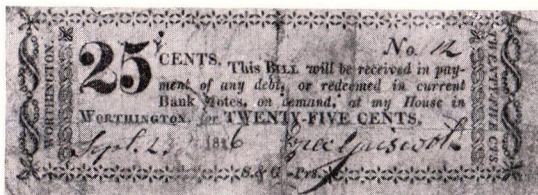 WORTHINGTON.
No. 12
25 CENTS. This BILL will be received in pay-
ment of any debt, or redeemed in current
Bank Notes, on demand, at my House in
WORTHINGTON, for TWENTY-FIVE CENTS.
Sept. 23 1816 Ezra Griswold
S. & G. Prs.
TWENTY-FIVE CTS.